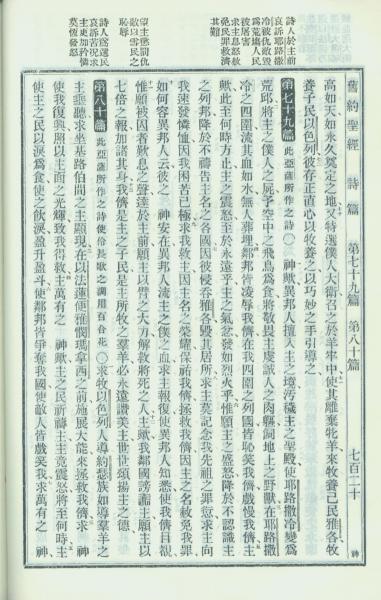 舊約聖經 詩篇 第七十九篇 第八十篇 七百二十 神
高如天如永久奠定之地又特選僕人大衛名之於羊牢中使其離棄牝羊來牧養己民雅各牧
養子民以色列彼存正直心以牧養之以巧妙之手引導之
第七十九篇 此亞薩所作之詩○ 神歟異邦人擅入主之境污穢主之聖殿使耶路撒冷變爲
荒邱將主之僕人之屍予空中之飛鳥爲食將敬畏主虔誠人之肉餧詞地上之野獸在耶路撒
冷之四圍流其血如水無人葬埋鄰邦皆凌辱我儕在我四圍之列國皆恥笑我儕戲慢我儕主
歟此至何時方止主之震怒至於永遠乎主之氣忿發如烈火乎惟願主之盛怒降於不認識主
之列邦降於不禱告主名之各國因彼侵吞雅各毀其居所求主莫記念我先祖之罪愆求主向
我速發憐恤因我困苦已極求我救主因主名之榮耀保祐我儕拯救我儕因主之名赦免我罪
如何容異邦人云彼之 神安在異邦人流主之僕之血求主報復使異邦人知悉使我儕目視
惟願被囚者歎息之聲達於主前願主以臂之大力解救將死之人主歟我鄰國謗讟主願主以
七倍之報加諸其身我儕是主之子民是主所牧之羣羊必永遠讚美主世世頌揚主之德
第八十篇 此亞薩所作之詩使伶長歌之調用百合花○求牧以色列人導約瑟族如導羣羊之
主垂聽求坐基路伯間之主顯現在以法蓮便雅憫瑪拿西之前施展大能來拯救我儕求 神
使我復興照以主面之光輝致我得救主萬有之 神歟主之民祈禱主主竟震怒將至何時主
使主之民以淚爲食使之飲淚盈升盈斗使鄰邦皆爭奪我國使敵人皆戲笑我求萬有之 神
詩人於主前
哀訴耶路撒
冷被仇敵毀
爲荒墟人民
被屠害
求主息怒赦
免民罪救濟
其難
望主懲罰仇
敵以雪民之
恥辱
詩人爲選民
哀訴苦況求
主更加矜憐
莫恆發怒